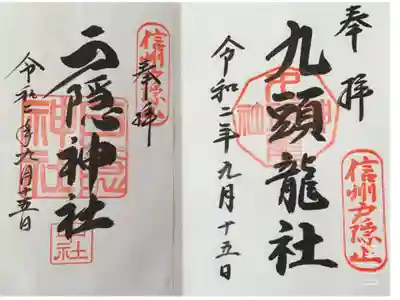 奉拝
九頭龍社
令和二年九月十五日
信州戸隠山
信州戸隠山
奉拝
戸隠神社
令和二年九月十五日